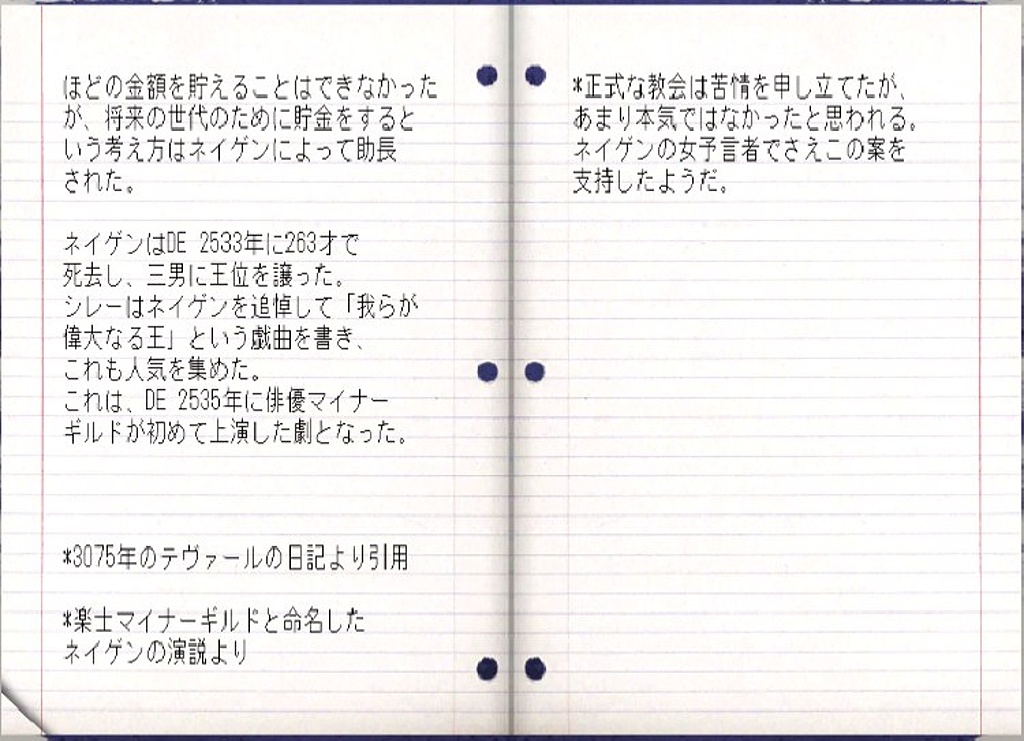 ほどの金額を貯えることはできなかった
が、将来の世代のために貯金をすると
いう考え方はネイゲンによって助長
された。
ネイゲンはDE 2533年に263才で
死去し、三男に王位を譲った。
シレーはネイゲンを追悼して「我らが
偉大なる王」という戯曲を書き、
これも人気を集めた。
これは、DE 2535年に俳優マイナー
ギルドが初めて上演した劇となった。
*3075年のテヴァールの日記より引用
*楽士マイナーギルドと命名した
ネイゲンの演説より
*正式な教会は苦情を申し立てたが、
あまり本気ではなかったと思われる。
ネイゲンの女予言者でさえこの案を
支持したようだ。